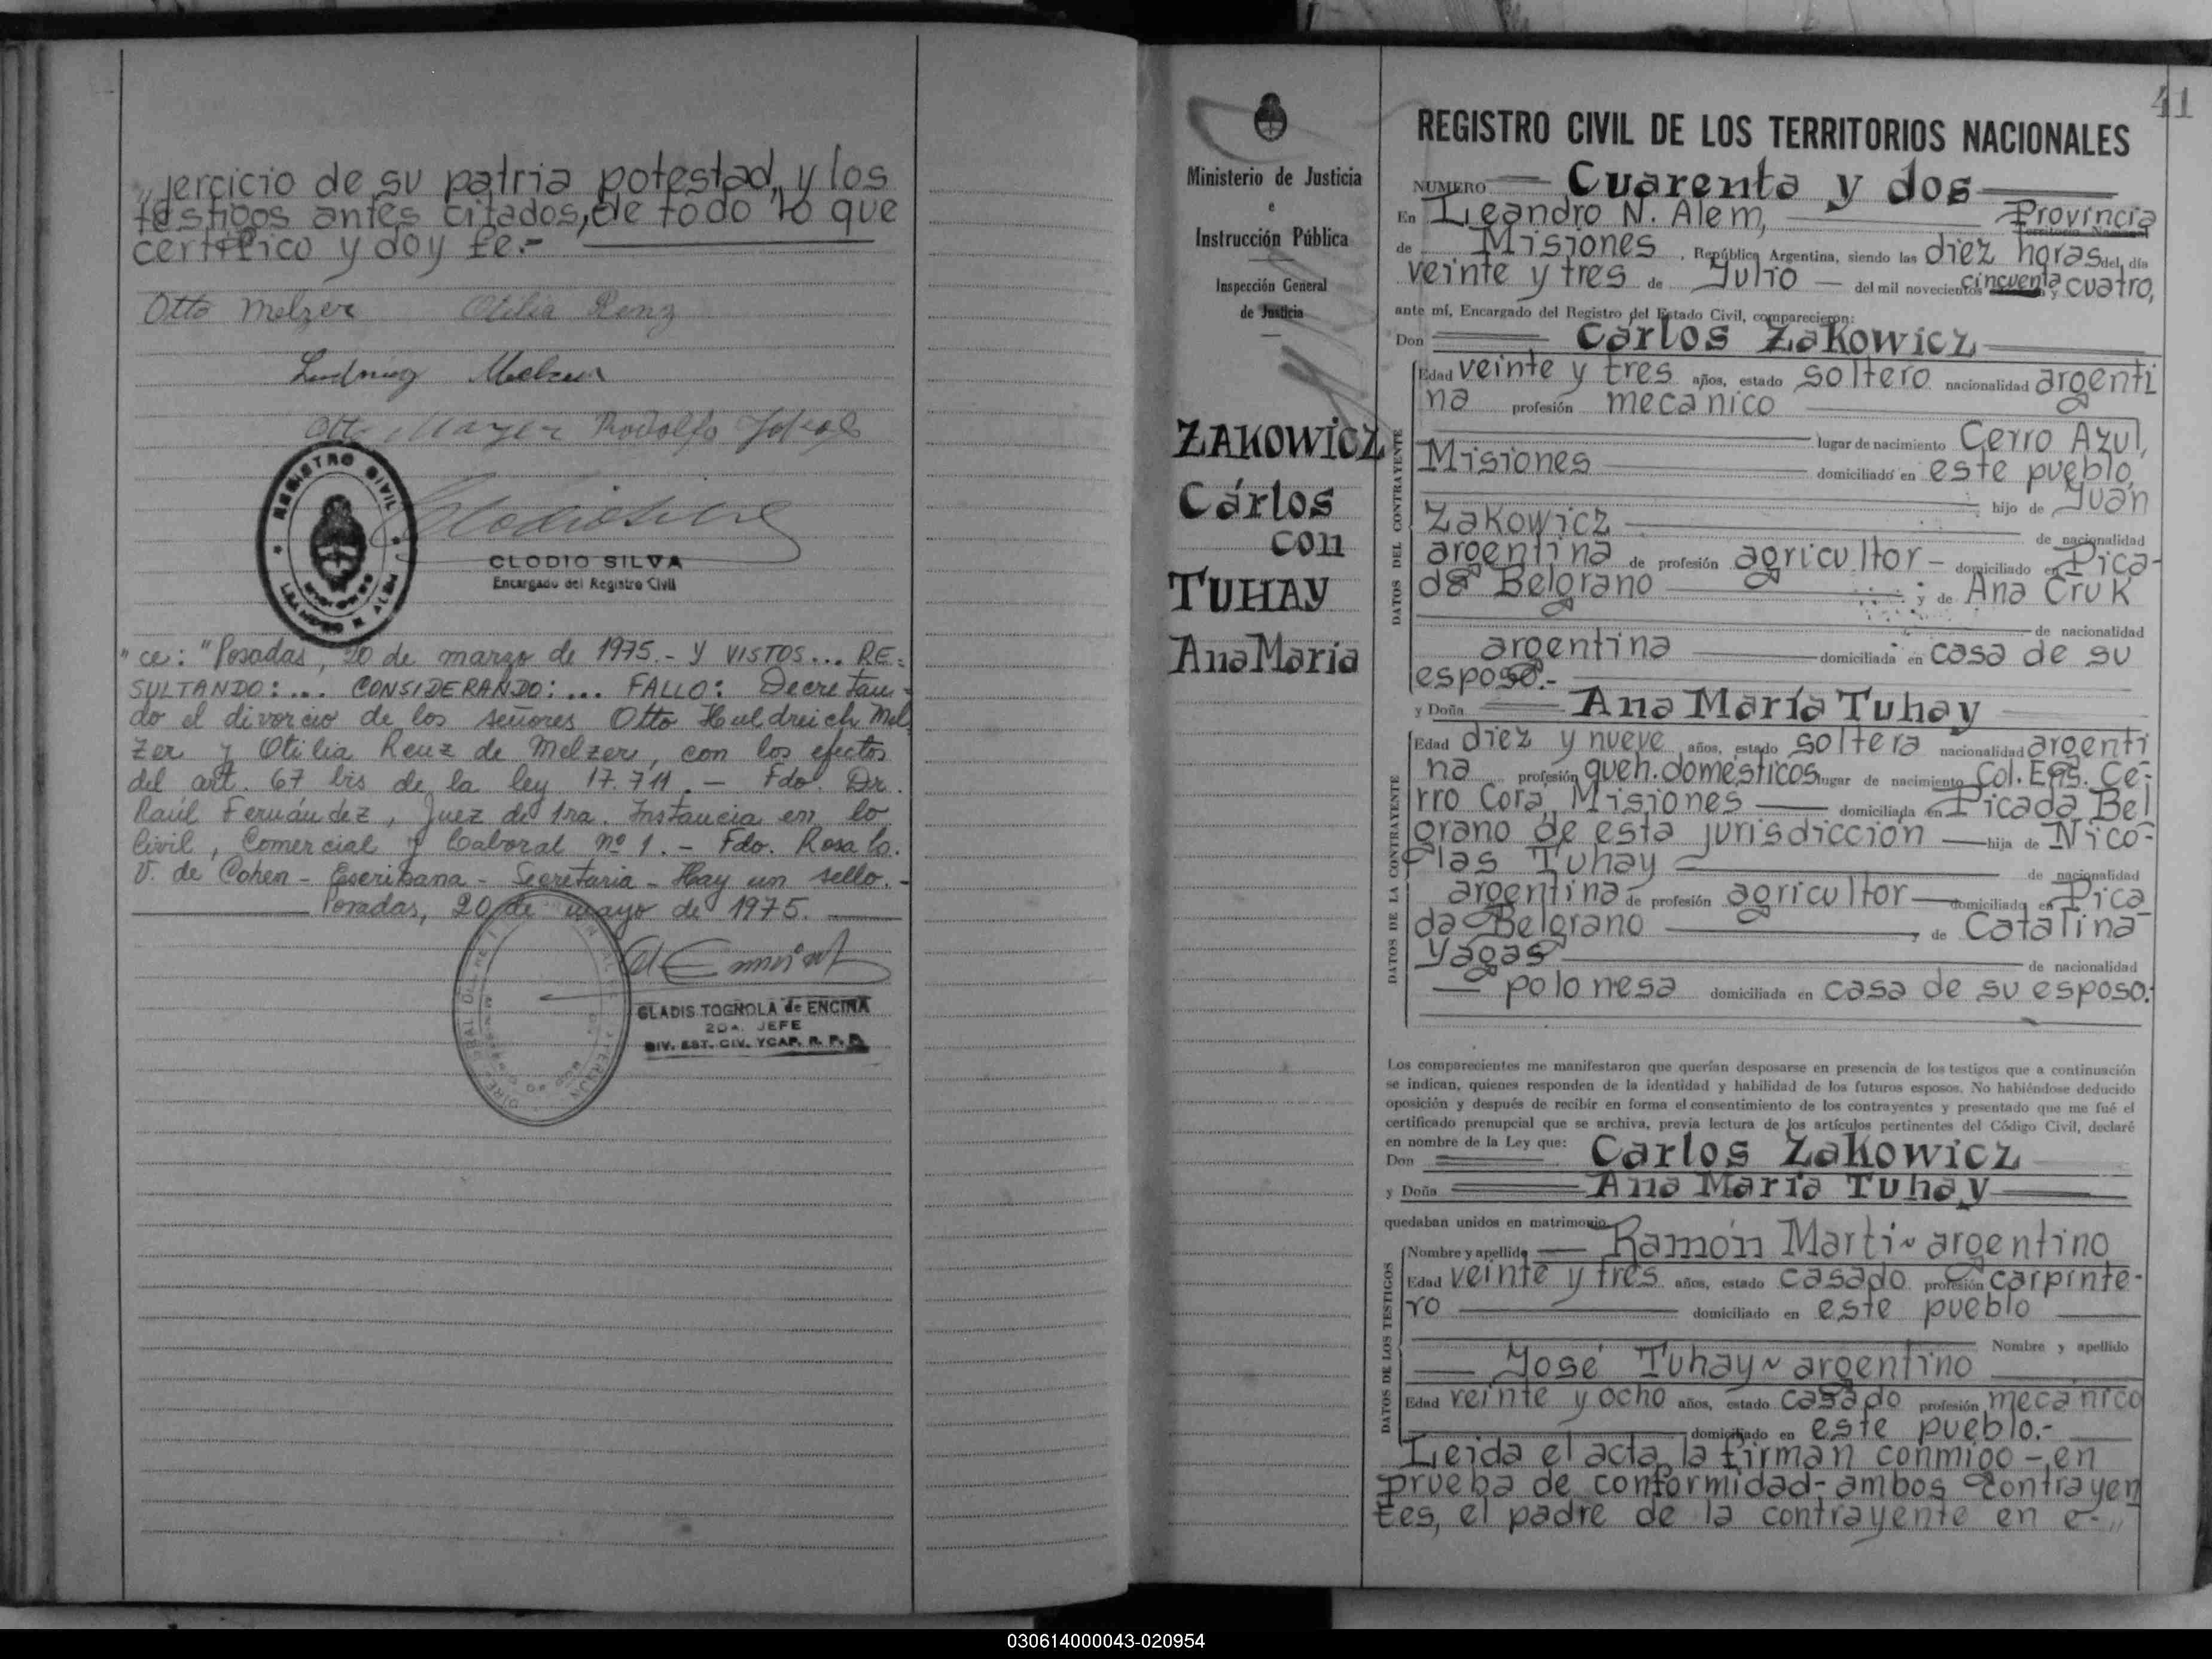 „jercicio de su patria potestad, y los
testigos antes citados, de todo lo que
certifico y doy fe.-
Otto Melzer Otilia Renz
Ludwig Melzer
Otto Mayer Rodolfo
REGISTRO CIVIL
LEANDRO N. ALEM
CLODIO SILVA
Encargado del Registro Civil
"ce: "Posadas, 20 de marzo de 1975.- Y VISTOS... RE-
SULTANDO:... CONSIDERANDO:... FALLO: Decretan-
do el divorcio de los señores Otto Huldreich Mel
zer y Otilia Renz de Melzer, con los efectos
del art. 67 bis de la ley 17.711.- Fdo. Dr.
Raúl Fernández, Juez de 1ra. Instancia en lo
Civil, Comercial y Laboral nº 1.- Fdo. Rosa
V. de Cohen - Escribana - Secretaria - Hay un sello.-
Posadas, 20 de mayo de 1975.
GLADIS TOGNOLA de ENCINA
2DA. JEFE
DIV. EST. CIV. YCAP. R. P. P.
41
Ministerio de Justicia
e
Instrucción Pública
Inspección General
de Justicia
ZAKOWICZ
Cárlos
con
TUHAY
Ana María
REGISTRO CIVIL DE LOS TERRITORIOS NACIONALES
NUMERO Cuarenta y dos
En Leandro N. Alem, Provincia
Territorio Nacional
de Misiones, República Argentina, siendo las diez horas del día
veinte y tres de Julio del mil novecientos cincuenta y cuatro,
ante mí, Encargado del Registro del Estado Civil, comparecieron:
Don Carlos Zakowicz
DATOS DEL CONTRAYENTE
Edad veinte y tres años, estado soltero nacionalidad argenti
na profesión mecanico
lugar de nacimiento Cerro Azul,
Misiones domiciliado en este pueblo,
hijo de Juan
Zakowicz de nacionalidad
argentina de profesión agricultor - domiciliado en Pica-
da Belgrano y de Ana Cruk
de nacionalidad
argentina domiciliada en casa de su
esposo.-
y Doña Ana María Tuhay
DATOS DE LA CONTRAYENTE
Edad diez y nueve años, estado soltera nacionalidad argenti
na profesión queh. domésticos lugar de nacimiento Col. Ens. Ce-
rro Corá, Misiones domiciliada en Picada Bel
grano de esta jurisdiccion hija de Nico-
las Tuhay de nacionalidad
argentina de profesión agricultor domiciliado en Pica
da Belgrano y de Catalina
Yagas de nacionalidad
polonesa domiciliada en casa de su esposo.-
Los comparecientes me manifestaron que querían desposarse en presencia de los testigos que a continuación
se indican, quienes responden de la identidad y habilidad de los futuros esposos. No habiéndose deducido
oposición y después de recibir en forma el consentimiento de los contrayentes y presentado que me fué el
certificado prenupcial que se archiva, previa lectura de los artículos pertinentes del Código Civil, declaré
en nombre de la Ley que:
Don Carlos Zakowicz
y Doña Ana María Tuhay
quedaban unidos en matrimonio.
DATOS DE LOS TESTIGOS
Nombre y apellido Ramón Marti~ argentino
Edad veinte y tres años, estado casado profesión carpinte-
ro domiciliado en este pueblo
Nombre y apellido
José Tuhay~ argentino
Edad veinte y ocho años, estado casado profesión mecanico
domiciliado en este pueblo.-
Leida el acta, la firman conmigo - en
prueba de conformidad- ambos contrayen
tes, el padre de la contrayente en e-„
030614000043-020954